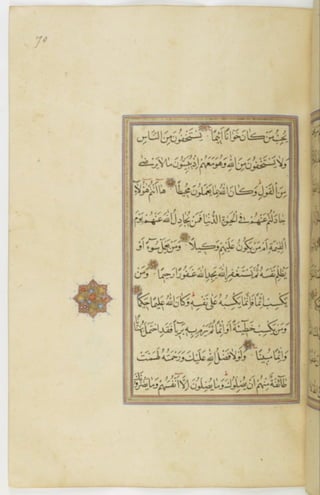 70
يُحِبُّ مَنْ كَانَ خَوَّانًا اَثِيمًا يَسْتَخْفُونَ مِنَ النَّاسِ
وَلَا يَسْتَخْفُونَ مِنَ اللهِ وَهُوَ مَعَهُمْ اِذْ يُبَيِّتُونَ مَا لَا يَرْضٰى
مِنَ الْقَوْلِ وَكَانَ اللهُ بِمَا يَعْمَلُونَ مُحِيطًا هَا اَنْتُمْ هٰؤُلَاءِ
جَادَلْتُمْ عَنْهُمْ فِي الْحَيٰوةِ الدُّنْيَا فَمَنْ يُجَادِلُ اللهَ عَنْهُمْ يَوْمَ
الْقِيٰمَةِ اَمْ مَنْ يَكُونُ عَلَيْهِمْ وَكِيلًا وَمَنْ يَعْمَلْ سُوءًا اَوْ
يَظْلِمْ نَفْسَهُ ثُمَّ يَسْتَغْفِرِ اللهَ يَجِدِ اللهَ غَفُورًا رَحِيمًا وَمَنْ
يَكْسِبْ اِثْمًا فَاِنَّمَا يَكْسِبُهُ عَلٰى نَفْسِهِ وَكَانَ اللهُ عَلِيمًا حَكِيمًا
وَمَنْ يَكْسِبْ خَطِيئَةً اَوْ اِثْمًا ثُمَّ يَرْمِ بِهِ بَرِيئًا فَقَدِ احْتَمَلَ بُهْتَانًا
وَاِثْمًا مُبِينًا وَلَوْلَا فَضْلُ اللهِ عَلَيْكَ وَرَحْمَتُهُ لَهَمَّتْ
طَائِفَةٌ مِنْهُمْ اَنْ يُضِلُّوكَ وَمَا يُضِلُّونَ اِلَّا اَنْفُسَهُمْ وَمَا يَضُرُّونَكَ